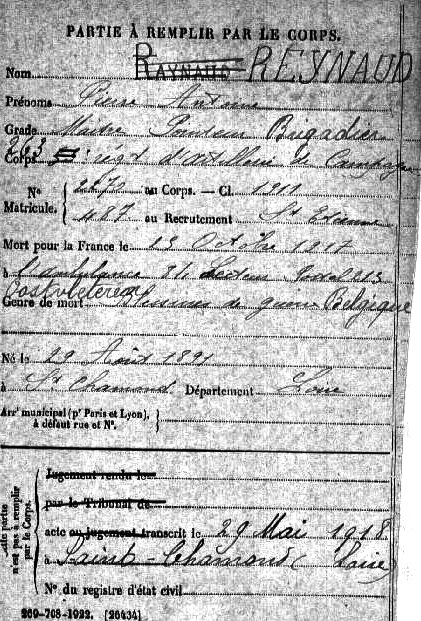 PARTIE À REMPLIR PAR LE CORPS.
Nom RAYNAUD REYNAUD
Prénoms Pierre Antoine
Grade Maître Pointeur Brigadier
Corps 263 régt d'artillerie de Campagne
No Matricule. { 2870 au Corps. — Cl. 1911
487 au Recrutement St Etienne
Mort pour la France le 23 Octobre 1917
à l'ambulance Secteur Postal 213
Oostvleteren Belgique
Genre de mort Blessures de guerre
Né le 29 Août 1891
à St Chamond Département Loire
Arrt municipal (pr Paris et Lyon), à défaut rue et No. }
Cette partie n'est pas à remplir par le Corps.
Jugement rendu le
par le Tribunal de
acte ou jugement transcrit le 29 Mai 1918
à Saint-Chamond (Loire)
No du registre d'état civil
269-708-1922. [26434]